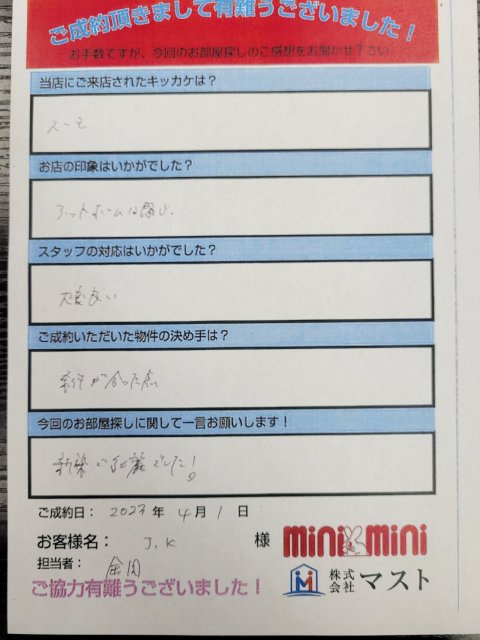 ご成約頂きまして有難うございました！
お手数ですが、今回のお部屋探しのご感想をお聞かせ下さい。
当店にご来店されたキッカケは？
スーモ
お店の印象はいかがでした？
アットホームな感じ。
スタッフの対応はいかがでした？
大変良い
ご成約いただいた物件の決め手は？
条件が合った為
今回のお部屋探しに関して一言お願いします！
新築で綺麗でした！
ご成約日： 2023 年 4 月 1 日
お客様名： J.K 様
minimini
担当者：
株式会社 マスト
ご協力有難うございました！